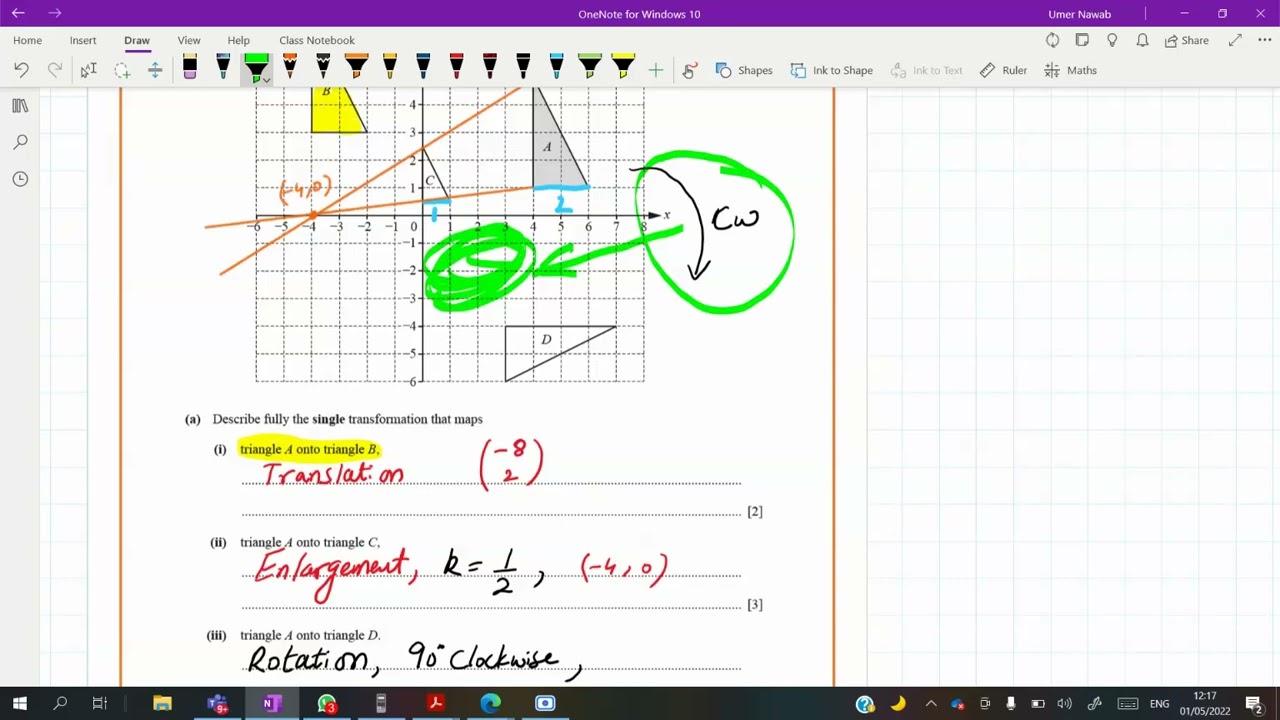 OneNote for Windows 10
Umer Nawab
Home Insert Draw View Help Class Notebook
Share
Shapes Ink to Shape Ink to Text Ruler Maths
B
4
3
A
2
(-4,0)
C
1
1
2
x
CW
-6 -5 -4 -3 -2 -1 0 1 2 3 4 5 6 7 8
-1
-2
-3
-4
D
-5
-6
(a) Describe fully the single transformation that maps
(i) triangle A onto triangle B,
Translation (-8 2)
[2]
(ii) triangle A onto triangle C,
Enlargement, k = 1/2, (-4, 0)
[3]
(iii) triangle A onto triangle D.
Rotation, 90° Clockwise,
9+
N
3
ENG
12:17
01/05/2022